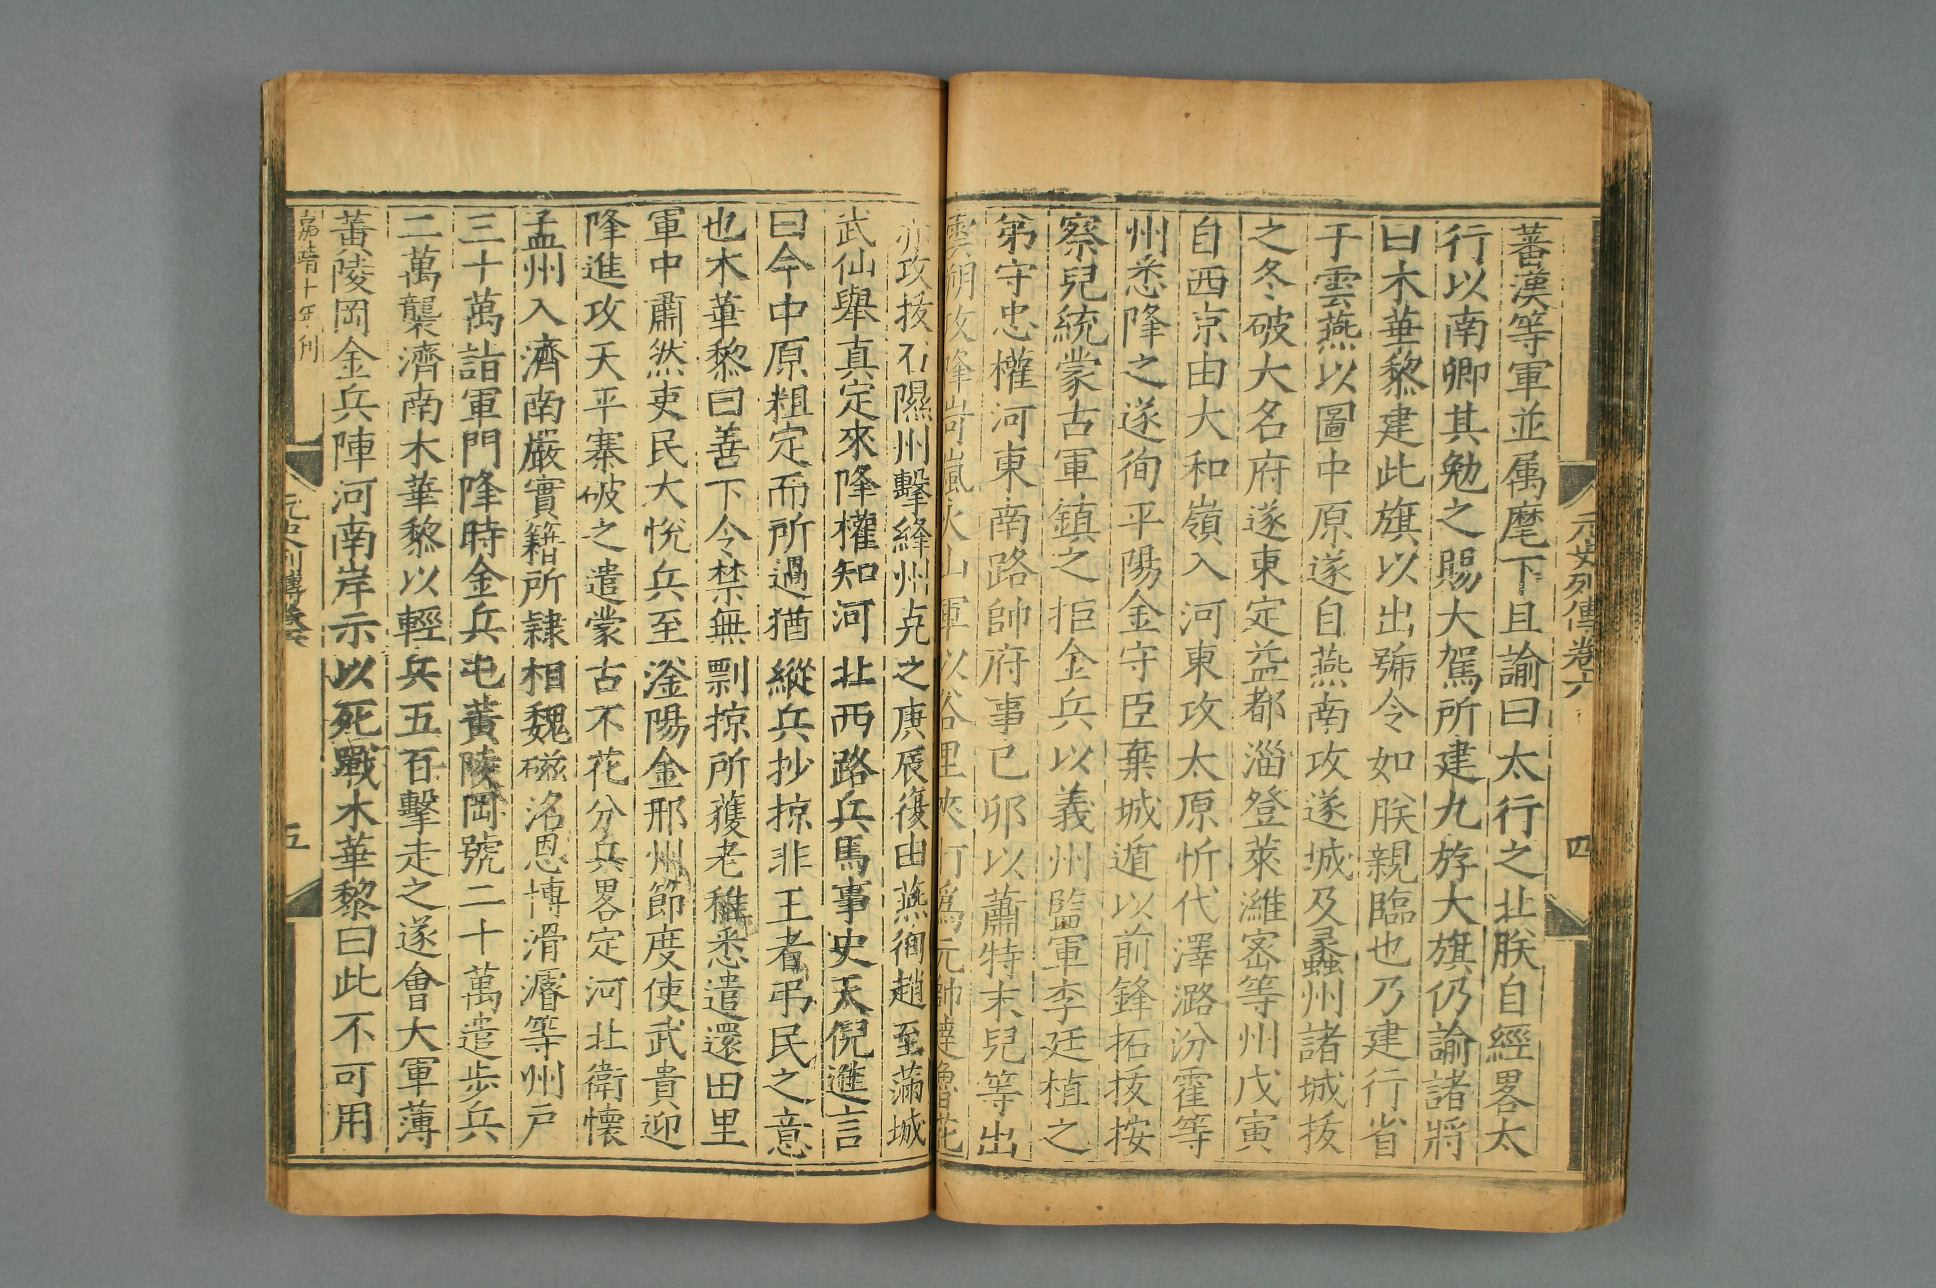 元史列傳卷六
四
蕃漢等軍並属麾下且諭曰太行之北朕自經畧太
行以南卿其勉之賜大駕所建九斿大旗仍諭諸將
曰木華黎建此旗以出號令如朕親臨也乃建行省
于雲燕以圖中原遂自燕南攻遂城及蠡州諸城拔
之冬破大名府遂東定益都淄登萊濰宻等州戊寅
自西京由大和嶺入河東攻太原忻代澤潞汾霍等
州悉降之遂徇平陽金守臣棄城遁以前鋒拓拔按
察兒統蒙古軍鎮之拒金兵以義州監軍李廷植之
第守忠權河東南路帥府事已卯以蕭特末兒等出
雲朔攻降岢嵐火山軍以谷里夾打爲元帥達魯花
赤攻拔石隰州擊絳州克之庚辰復由燕徇趙至滿城
武仙舉真定來降權知河北西路兵馬事史天倪進言
曰今中原粗定而所過猶縱兵抄掠非王者弔民之意
也木華黎曰善下令禁無剽掠所獲老稚悉遣還田里
軍中肅然吏民大恱兵至滏陽金邢州節度使武貴迎
降進攻天平寨破之遣蒙古不花分兵畧定河北衛懷
孟州入濟南嚴實籍所隷相魏磁洺恩博滑濬等州戸
三十萬詣軍門降時金兵屯黃陵岡號二十萬遣步兵
二萬襲濟南木華黎以輕兵五百擊走之遂會大軍薄
黃陵岡金兵陣河南岸示以死戰木華黎曰此不可用
嘉靖十年刊
元史列傳卷六
五